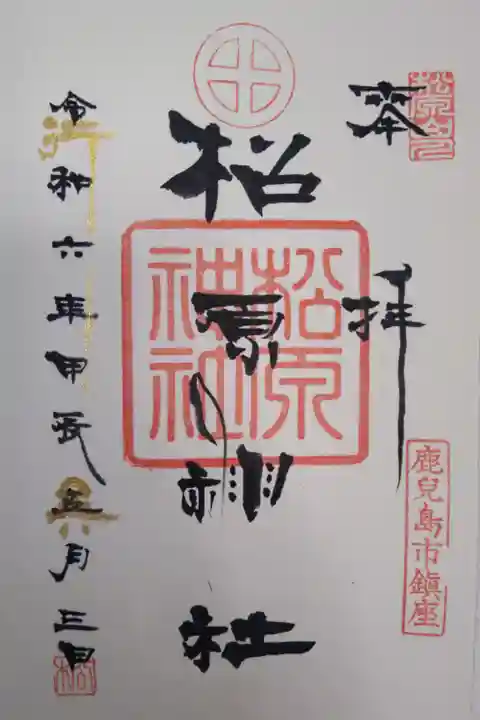 奉拝
鹿兒島市鎮座
松原神社
松原神社
令和六年甲辰五月三日